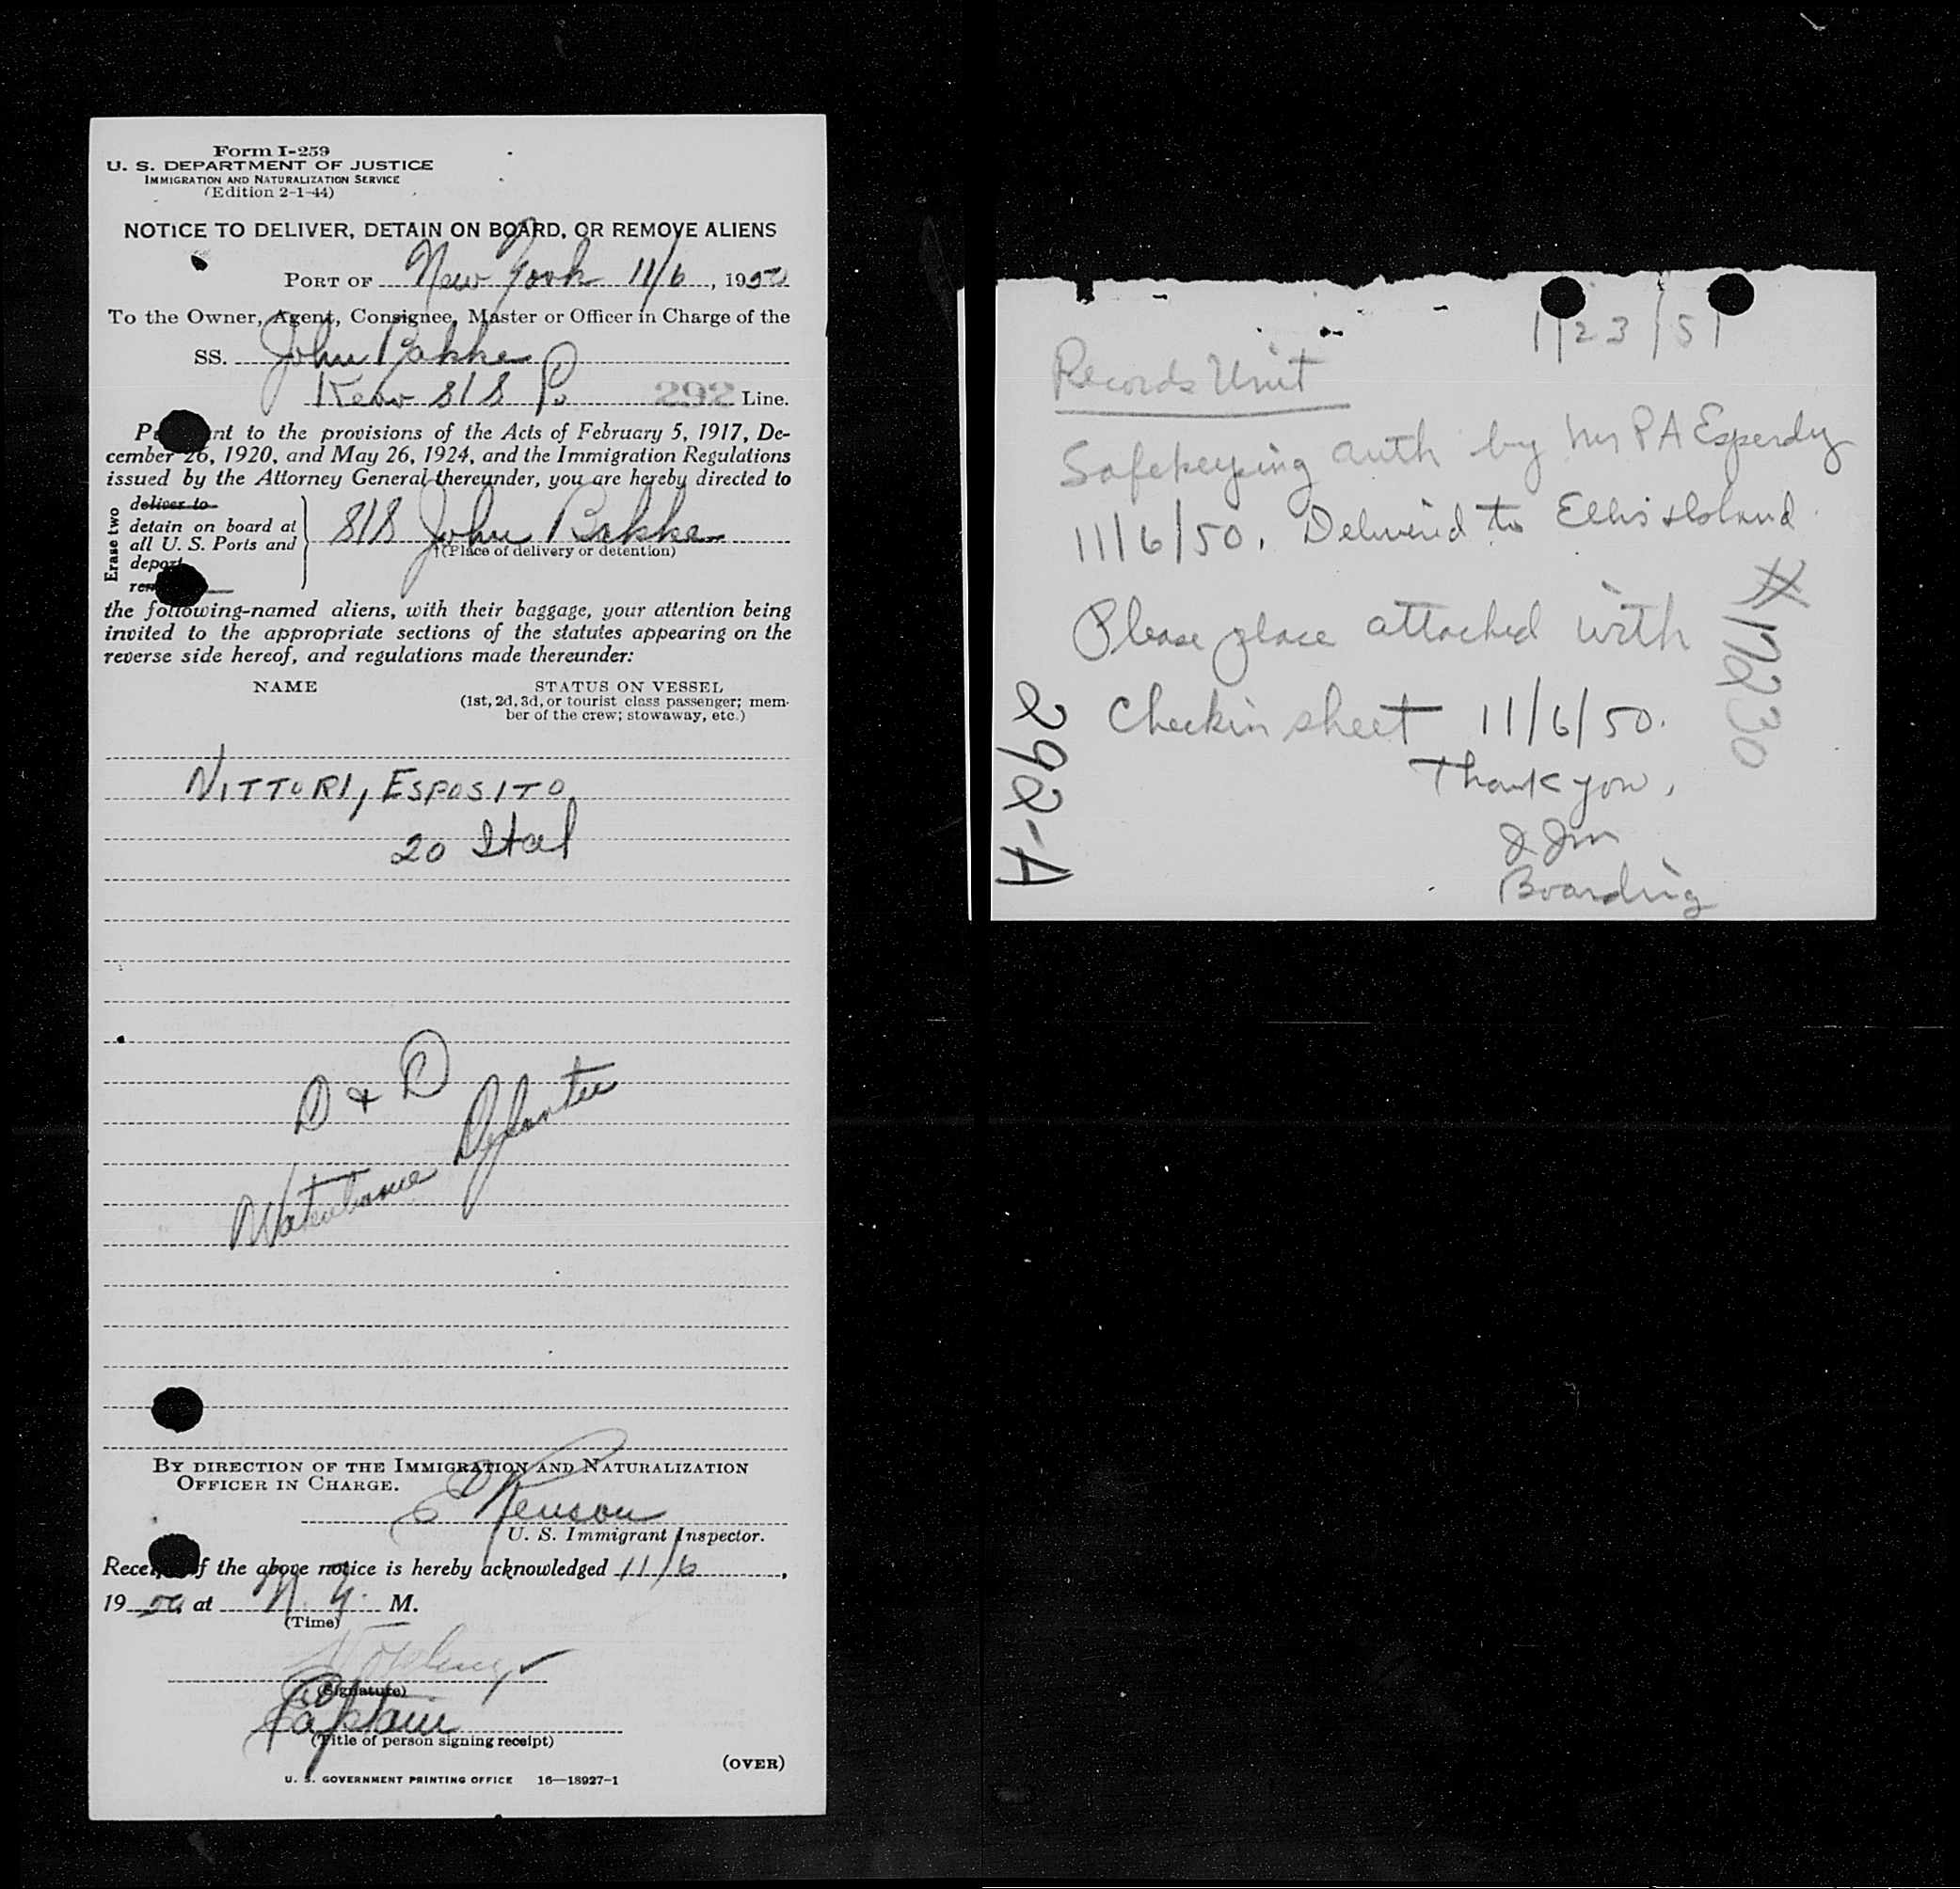 Form I-259
U. S. DEPARTMENT OF JUSTICE
IMMIGRATION AND NATURALIZATION SERVICE
(Edition 2-1-44)
NOTICE TO DELIVER, DETAIN ON BOARD, OR REMOVE ALIENS
PORT OF New York 11/6, 1950
To the Owner, Agent, Consignee, Master or Officer in Charge of the
SS. John Bakke
292 Line.
nt to the provisions of the Acts of February 5, 1917, De-
cember 26, 1920, and May 26, 1924, and the Immigration Regulations
issued by the Attorney General thereunder, you are hereby directed to
Erase two
deliver to
detain on board at
all U. S. Ports and
deport
S/S John Bakke
†(Place of delivery or detention)
the following-named aliens, with their baggage, your attention being
invited to the appropriate sections of the statutes appearing on the
reverse side hereof, and regulations made thereunder:
NAME STATUS ON VESSEL
(1st, 2d, 3d, or tourist class passenger; mem-
ber of the crew; stowaway, etc.)
VITTORI, ESPOSITO
20 Ital
D & D
BY DIRECTION OF THE IMMIGRATION AND NATURALIZATION
OFFICER IN CHARGE.
U. S. Immigrant Inspector.
Receipt of the above notice is hereby acknowledged 11/6,
1950 at N.Y. M.
(Time)
(Signature)
Captain
(Title of person signing receipt)
(OVER)
U. S. GOVERNMENT PRINTING OFFICE 16—18927-1
1/23/51
Records Unit
Safekeeping auth by Mr P A Esperdy
11/6/50. Delivered to Ellis Island
Please place attached with
Checkin sheet 11/6/50.
Thank you,
Boarding
#17230
292-A